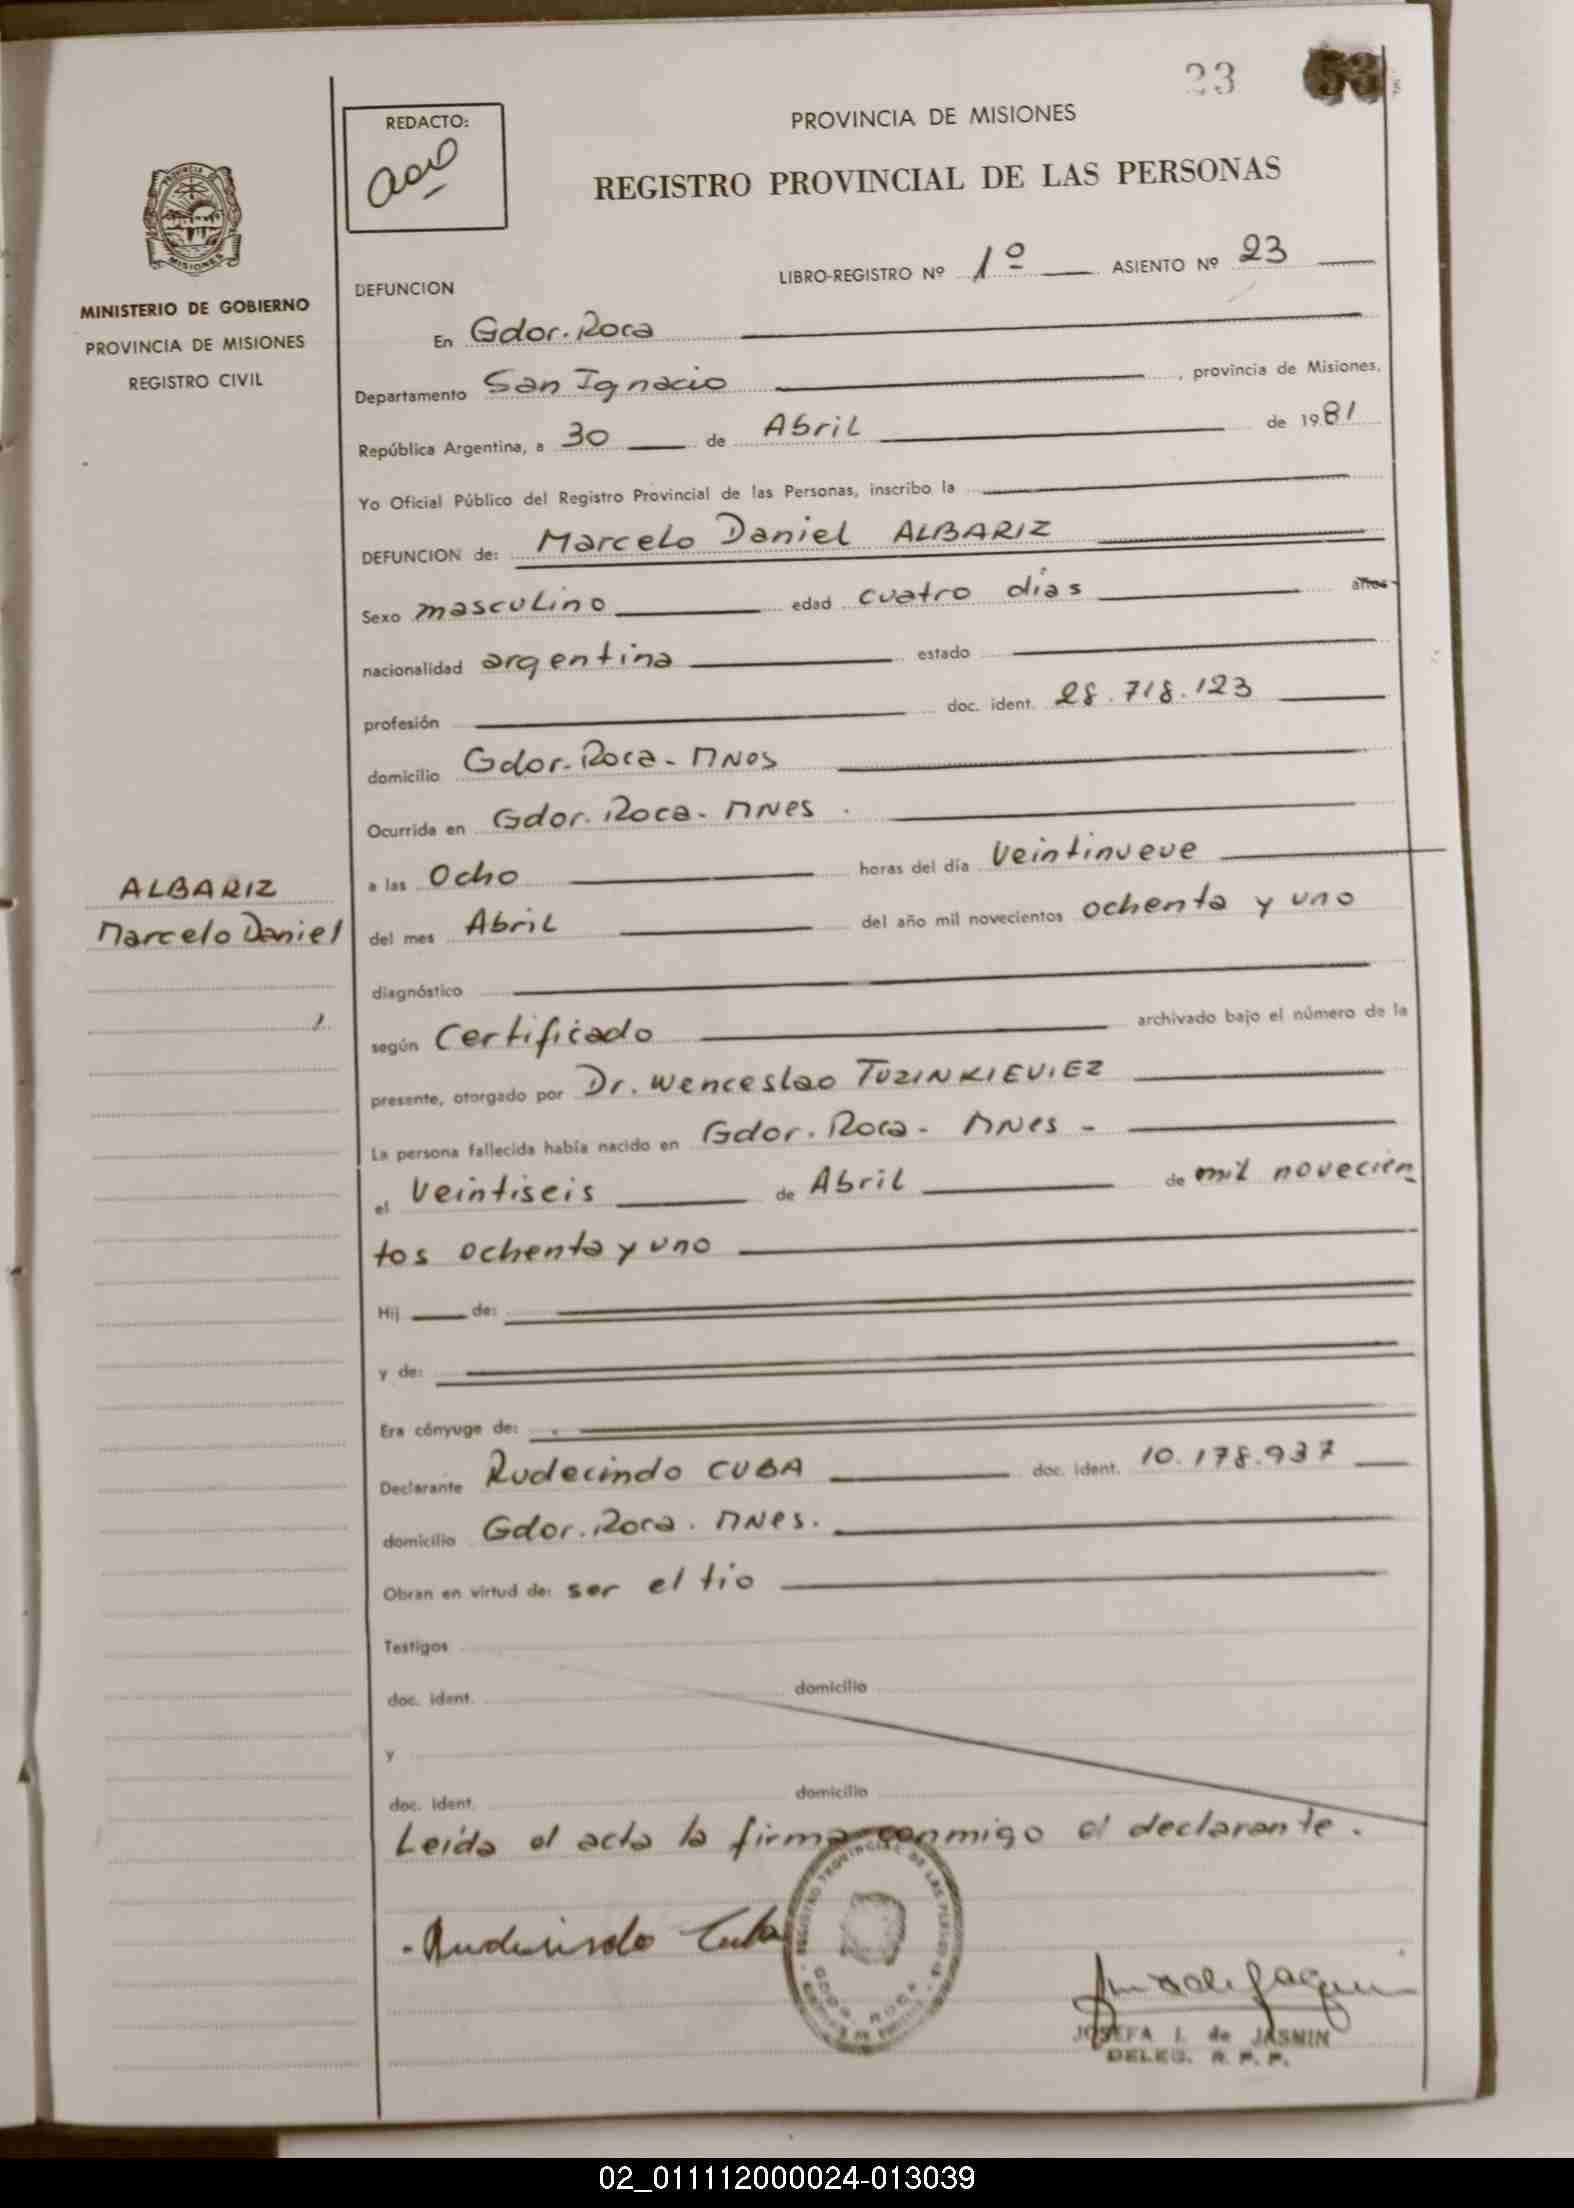 23 53
REDACTO:
PROVINCIA DE MISIONES
REGISTRO PROVINCIAL DE LAS PERSONAS
PROVINCIA DE
MISIONES
MINISTERIO DE GOBIERNO
PROVINCIA DE MISIONES
REGISTRO CIVIL
LIBRO-REGISTRO Nº 1º ASIENTO Nº 23
DEFUNCION
En Gdor. Roca
Departamento San Ignacio , provincia de Misiones,
República Argentina, a 30 de Abril de 1981
Yo Oficial Público del Registro Provincial de las Personas, inscribo la
DEFUNCION de: Marcelo Daniel ALBARIZ
Sexo masculino edad cuatro días años
nacionalidad argentina estado
profesión doc. ident. 28.718.123
domicilio Gdor. Roca - MNes
Ocurrida en Gdor. Roca - MNes.
a las Ocho horas del día Veintinueve
ALBARIZ
Marcelo Daniel
del mes Abril del año mil novecientos ochenta y uno
diagnóstico
según Certificado archivado bajo el número de la
presente, otorgado por Dr. Wenceslao TUZINKIEVIEZ
La persona fallecida había nacido en Gdor. Roca - MNes -
el Veintiseis de Abril de mil novecien
tos ochenta y uno
Hij de:
y de:
Era cónyuge de:
Declarante Rudecindo CUBA doc. ident. 10.178.937
domicilio Gdor. Roca. MNes.
Obran en virtud de: ser el tío
Testigos
doc. ident. domicilio
y
doc. ident. domicilio
Leída el acta la firma conmigo el declarante.
Rudecindo Cuba
REGISTRO PROVINCIAL DE LAS PERSONAS
GDOR. ROCA
JOSEFA I. de JASMIN
DELEG. R. P. P.
02_011112000024-013039